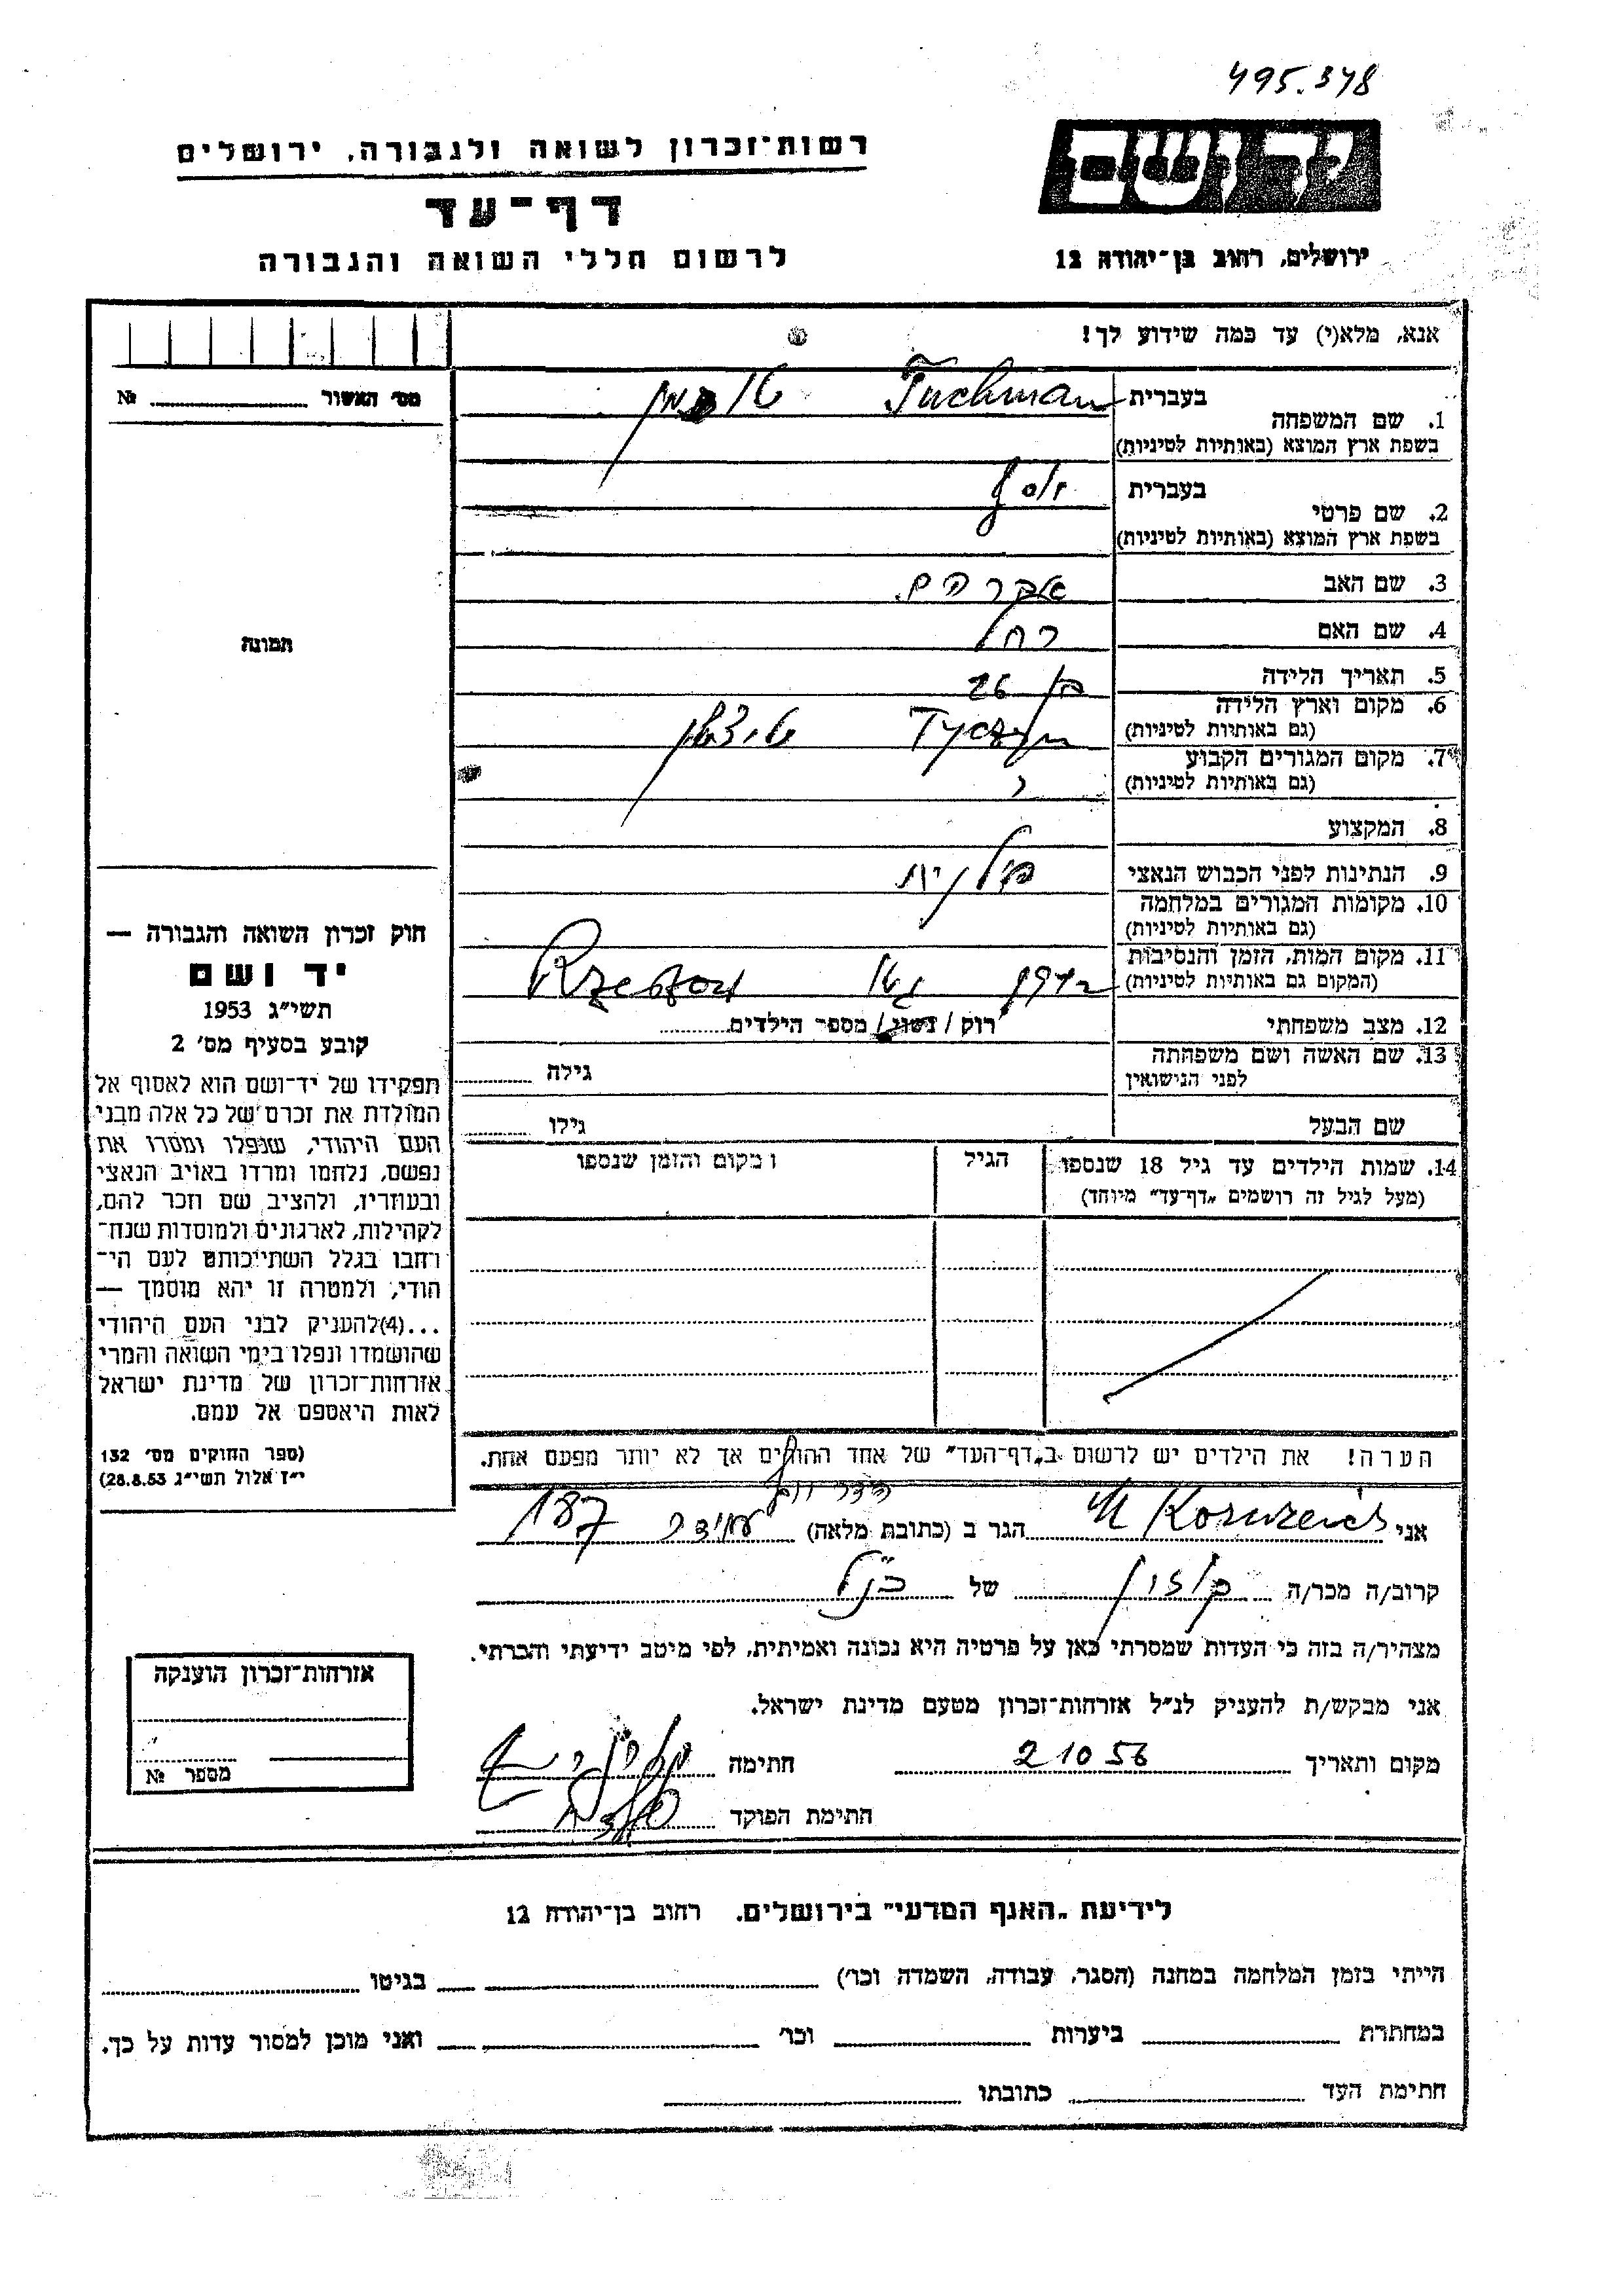 495.378
יד ושם
רשות־זכרון לשואה ולגבורה, ירושלים
דף־עד
לרשום חללי השואה והגבורה
ירושלים, רחוב בן־יהודה 12
אנא, מלא(י) עד כמה שידוע לך!
מס׳ האשור № 
בעברית Tuchman טוכמן
1. שם המשפחה
בשפת ארץ המוצא (באותיות לטיניות)
בעברית יוסף
2. שם פרטי
בשפת ארץ המוצא (באותיות לטיניות)
3. שם האב אברהם
4. שם האם רחל
תמונה
5. תאריך הלידה בן 26
6. מקום וארץ הלידה Tyczyn
(גם באותיות לטיניות)
7. מקום המגורים הקבוע
(גם באותיות לטיניות)
8. המקצוע
9. הנתינות לפני הכבוש הנאצי פולנית
10. מקומות המגורים במלחמה
(גם באותיות לטיניות)
11. מקום המות, הזמן והנסיבות
(המקום גם באותיות לטיניות) גטו
12. מצב משפחתי רוק / נשוי / מספר הילדים
13. שם האשה ושם משפחתה
לפני הנישואין גילה
שם הבעל גילו
14. שמות הילדים עד גיל 18 שנספו הגיל ומקום והזמן שנספו
(מעל לגיל זה רושמים „דף־עד״ מיוחד)
חוק זכרון השואה והגבורה —
יד ושם
תשי״ג 1953
קובע בסעיף מס׳ 2
תפקידו של יד־ושם הוא לאסוף אל
המולדת את זכרם של כל אלה מבני
העם היהודי, שנפלו ומסרו את
נפשם, נלחמו ומרדו באויב הנאצי
ובעוזריו, ולהציב שם וזכר להם,
לקהילות, לארגונים ולמוסדות שנח־
רחבו בגלל השתייכותם לעם הי־
הודי, ולמטרה זו יהא מוסמך —
...(4)להעניק לבני העם היהודי
שהושמדו ונפלו בימי השואה והמרי
אזרחות־זכרון של מדינת ישראל
לאות היאספם אל עמם.
(ספר החוקים מס׳ 132
י״ז אלול תשי״ג 28.8.53)
הערה! את הילדים יש לרשום ב„דף־העד״ של אחד ההורים אך לא יותר מפעם אחת.
אני הגר ב (כתובת מלאה) 187
קרוב/ה מכר/ה של הנ״ל
מצהיר/ה בזה כי העדות שמסרתי כאן על פרטיה היא נכונה ואמיתית, לפי מיטב ידיעתי והכרתי.
אני מבקש/ת להעניק לנ״ל אזרחות־זכרון מטעם מדינת ישראל.
מקום ותאריך 2 10 56 חתימה
חתימת הפוקד
אזרחות־זכרון הוענקה
מספר №
לידיעת „האגף המדעי״ בירושלים, רחוב בן־יהודה 12
הייתי בזמן המלחמה במחנה (הסגר, עבודה, השמדה וכו׳) בגיטו
במחתרת ביערות וכו׳ ואני מוכן למסור עדות על כך.
חתימת העד כתובתו